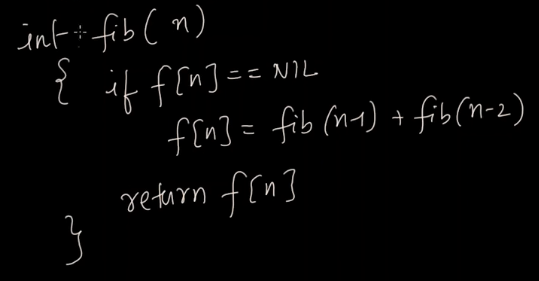 int fib(n)
{ if f[n]==NIL
f[n] = fib(n-1) + fib(n-2)
return f[n]
}